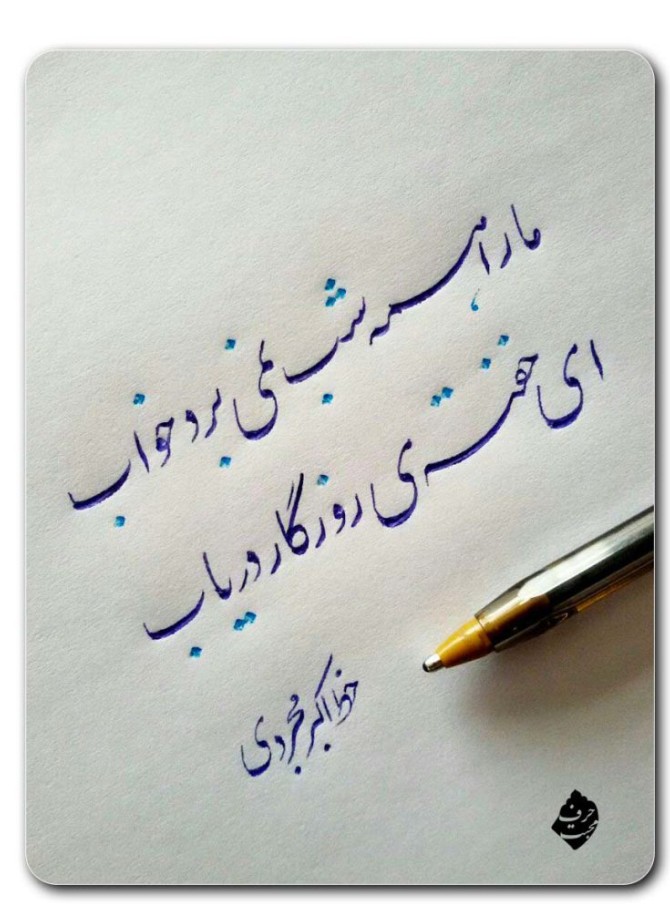 ما را همه شب نمی برد خواب
ای خفته ی روزگار دریاب
خط اکبر مجردی
حرف